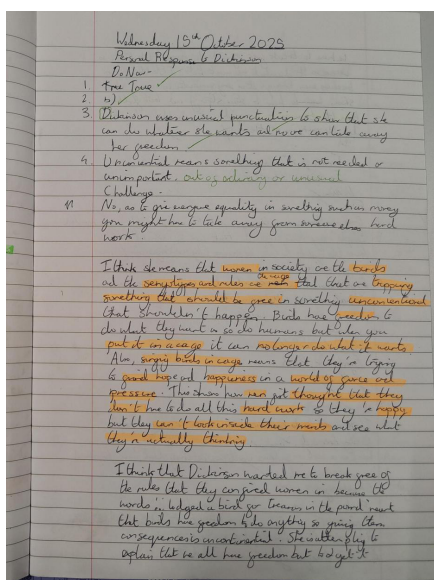 Wednesday 15th October 2025
Personal Response to Dickinson
Do Now-
1. True
2. b)
3. Dickinson uses unusual punctuation to show that she
can do whatever she wants and no one can take away
her freedom.
4. Unconvential means something that is not needed or
unimportant. out of ordinary or unusual
Challenge-
No, as to give everyone equality in something such as money
you might have to take away from someone else's hard
work.
I think she means that women in society are the birds
and the and rules are the cage that are trapping
something that should be free in something unconventional
that shouldn't happen. Birds have freedom to
do what they want as do humans but when you
put it in a cage it can no longer do what it wants.
Also, singing birds in cage means that they're trying
to find hope and happiness in a world of and
pressure. This shows how men thought that they
don't have to do all this hard work so they're happy
but they can't look inside their minds and see what
they're actually thinking
I think that Dickinson wanted me to break free of
the rules that they confined women in because the
words '... lodged a bird for treason in the pound' meant
that birds have freedom to do anything so giving them
consequences is unconventional. She is attempting to
explain that we all have freedom but to get it